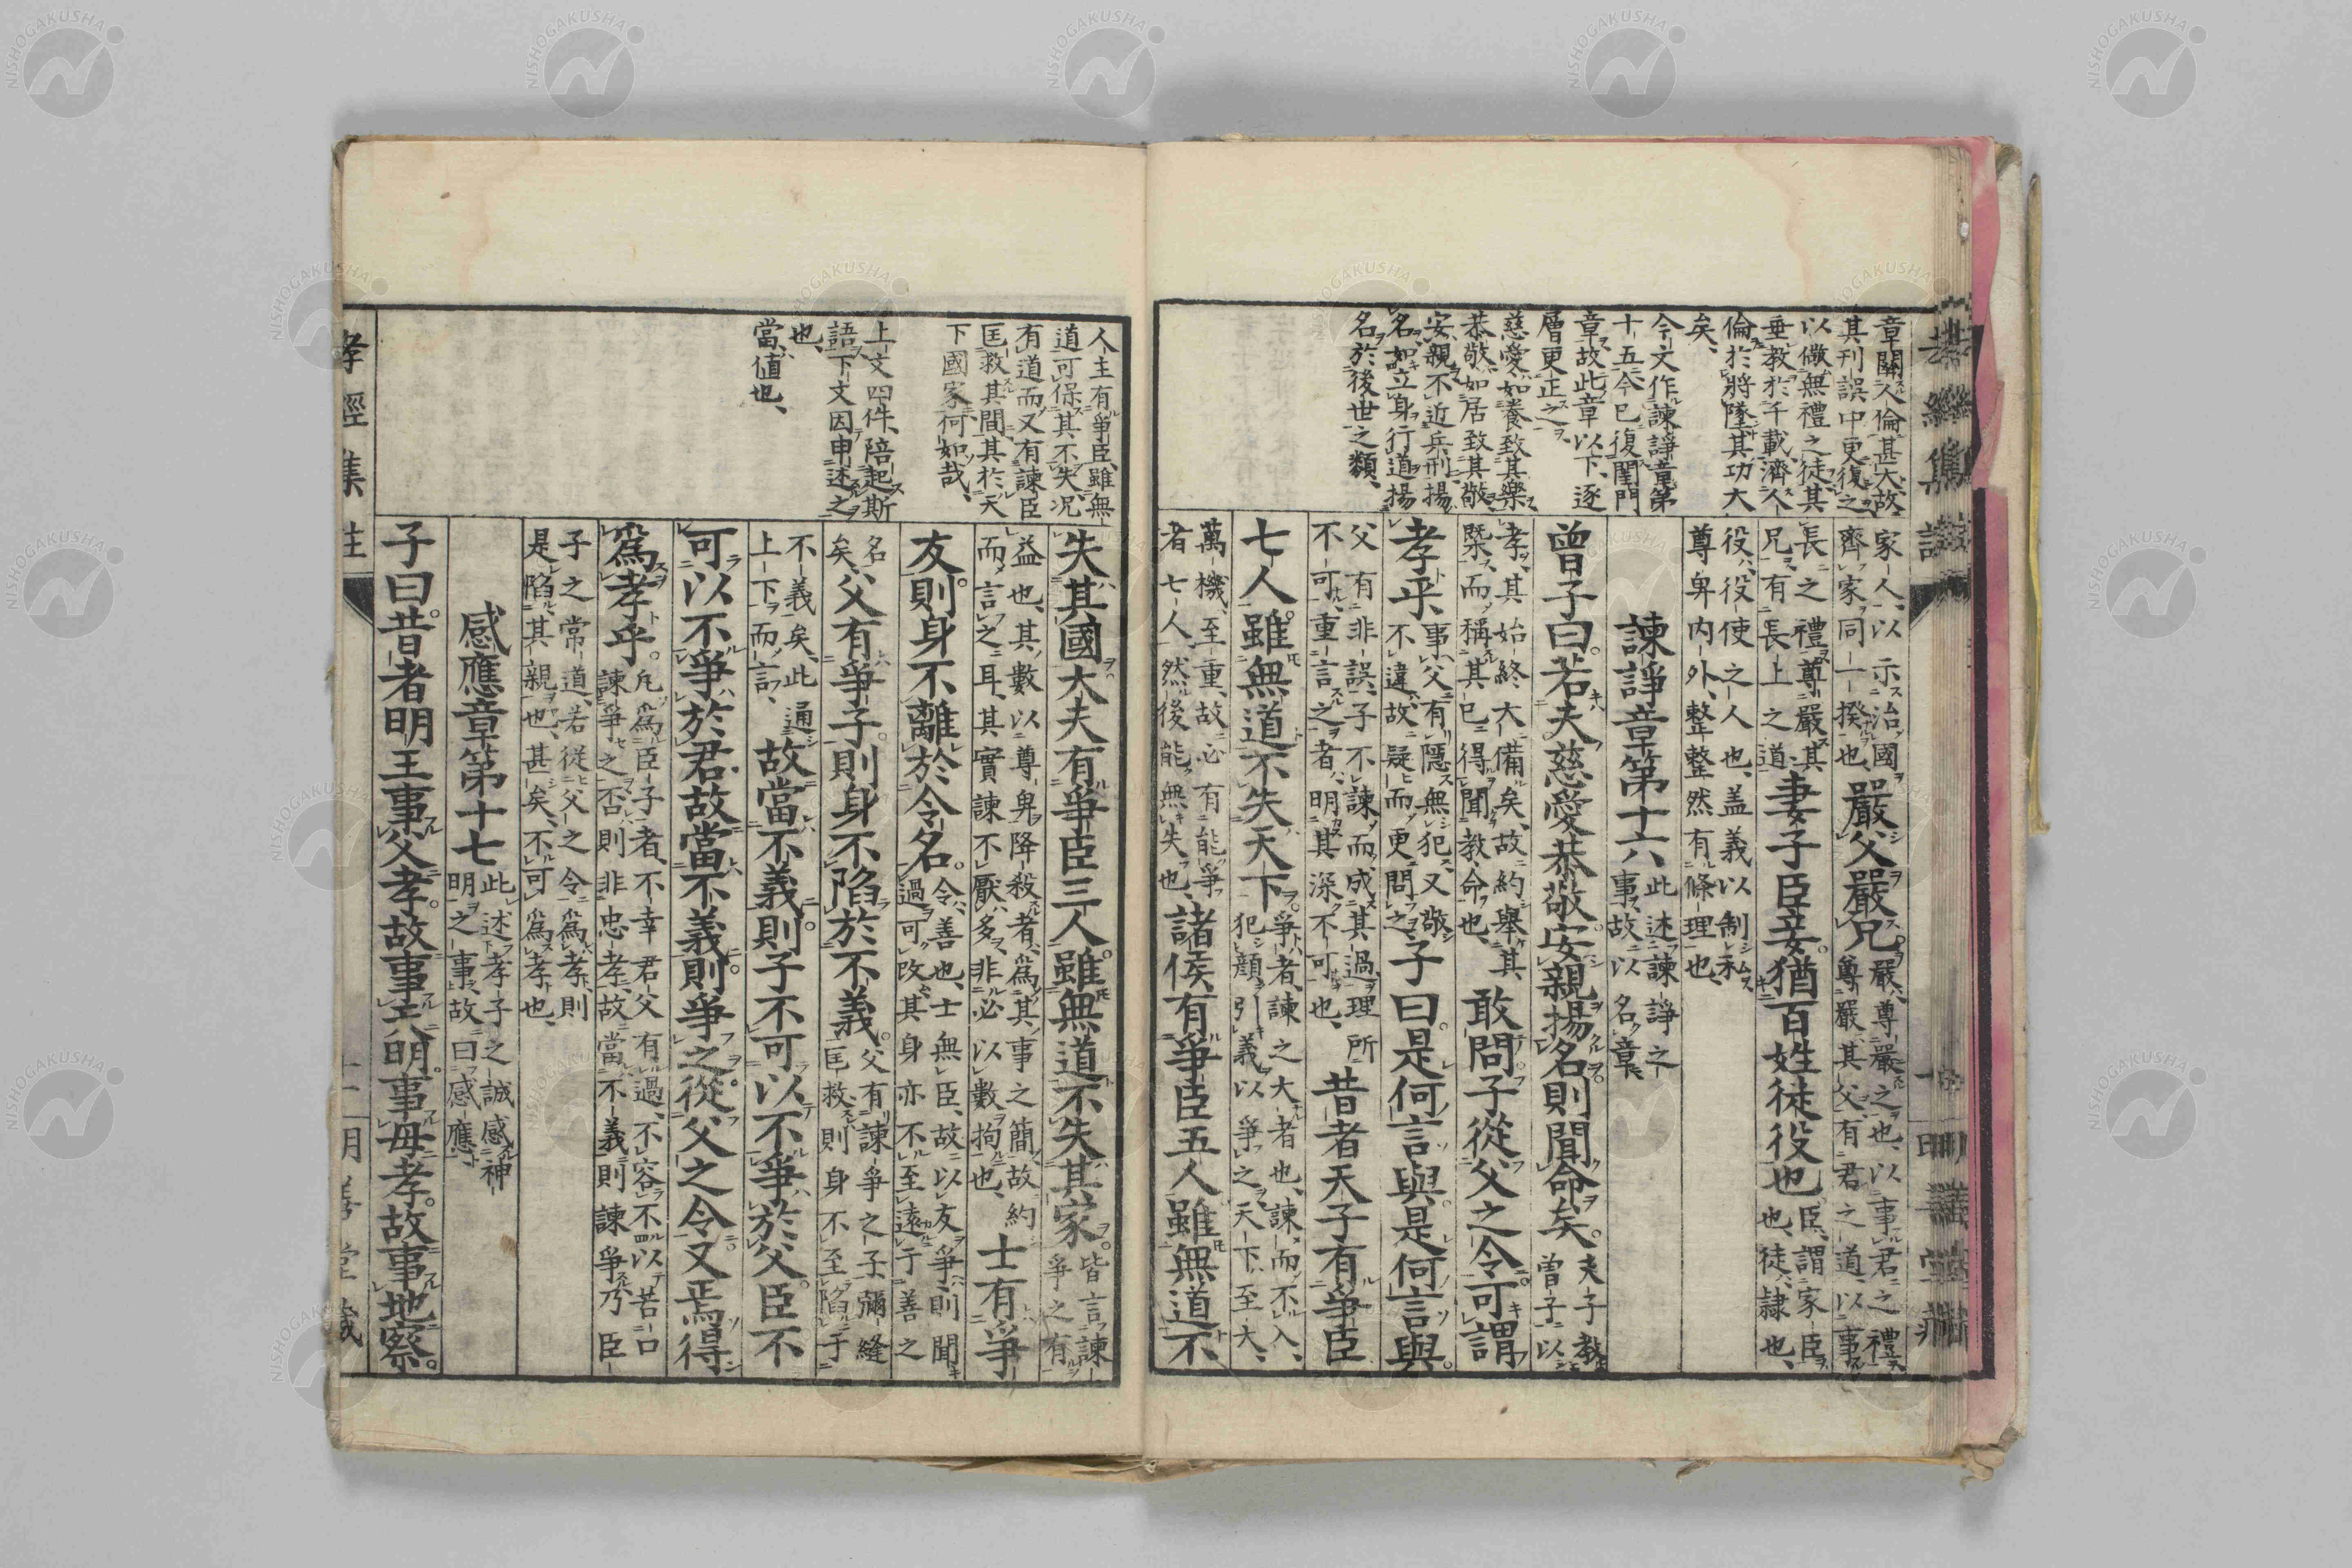 章關人倫甚大故
其刊誤中更復之
以儆無禮之徒其
垂教於千載濟人
倫於將墜其功大
矣、
今文作諫諍章第
十五今已復閨門
章故此章以下、逐
層更正之
慈愛如養致其樂
恭敬如居致其敬
安親不近兵刑揚
名如立身行道揚
名於後世之類、
家人以示治國
齊家同一揆也、
嚴父嚴兄
嚴尊嚴之也、以事君之禮
尊嚴其父有君之道以事
長之禮尊嚴其
兄有長上之道
妻子臣妾猶百姓徒役也
臣謂家臣
也、徒隷也、
役役使之人也、盖義以制私
尊卑内外、整整然有條理也、
諫諍章第十六
此述諫諍之
事故以名章
曾子曰若夫慈愛恭敬安親揚名則聞命矣
夫子教
曾子以
孝其始終大備矣、故約舉其
槩而稱其已得聞教命也、
敢問子從父之令可謂
孝乎
事父有隱無犯又敬
不違故疑而更問之
子曰是何言與是何言與
父有非誤、子不諫而成其過理所
不可重言之者、明其深不可也、
昔者天子有爭臣
七人雖無道不失天下
爭者、諫之大者也、諫而不入、
犯顔引義以爭之天下至大、
萬機至重故必有能爭
者七人然後能無失也、
諸侯有爭臣五人雖無道不
人主有爭臣雖無
道可保其不失况
有道而又有諫臣
匡救其間其於天
下國家何如哉、
上文四件、陪起斯
語下文因申述之
也、
當值也、
失其國大夫有爭臣三人雖無道不失其家
皆言諫
爭之有
益也、其數以尊卑降殺者、爲其事之簡故約
而言之耳、其實諫不厭多、非必以數拘也、
士有爭
友則身不離於令名
令善也、士無臣、故以友爭則聞
過可改、其身亦不至遠于善之
名
矣、
父有爭子則身不陷於不義
父有諫爭之子彌縫
匡救則身不至陷于
不義矣、此通
上下而言、
故當不義則子不可以不爭於父臣不
可以不爭於君故當不義則爭之從父之令又焉得
爲孝乎
凡爲臣子者、不幸君父有過、不容不以苦口
諫爭之否則非忠孝、故當不義則諫爭乃臣
子之常道、若從父之令爲孝則
是陷其親也、甚矣、不可爲孝也、
感應章第十七
此述孝子之誠感神
明之事故曰感應
子曰昔者明王事父孝故事天明事母孝故事地察
孝經集註
明善堂藏
NISHOGAKUSHA